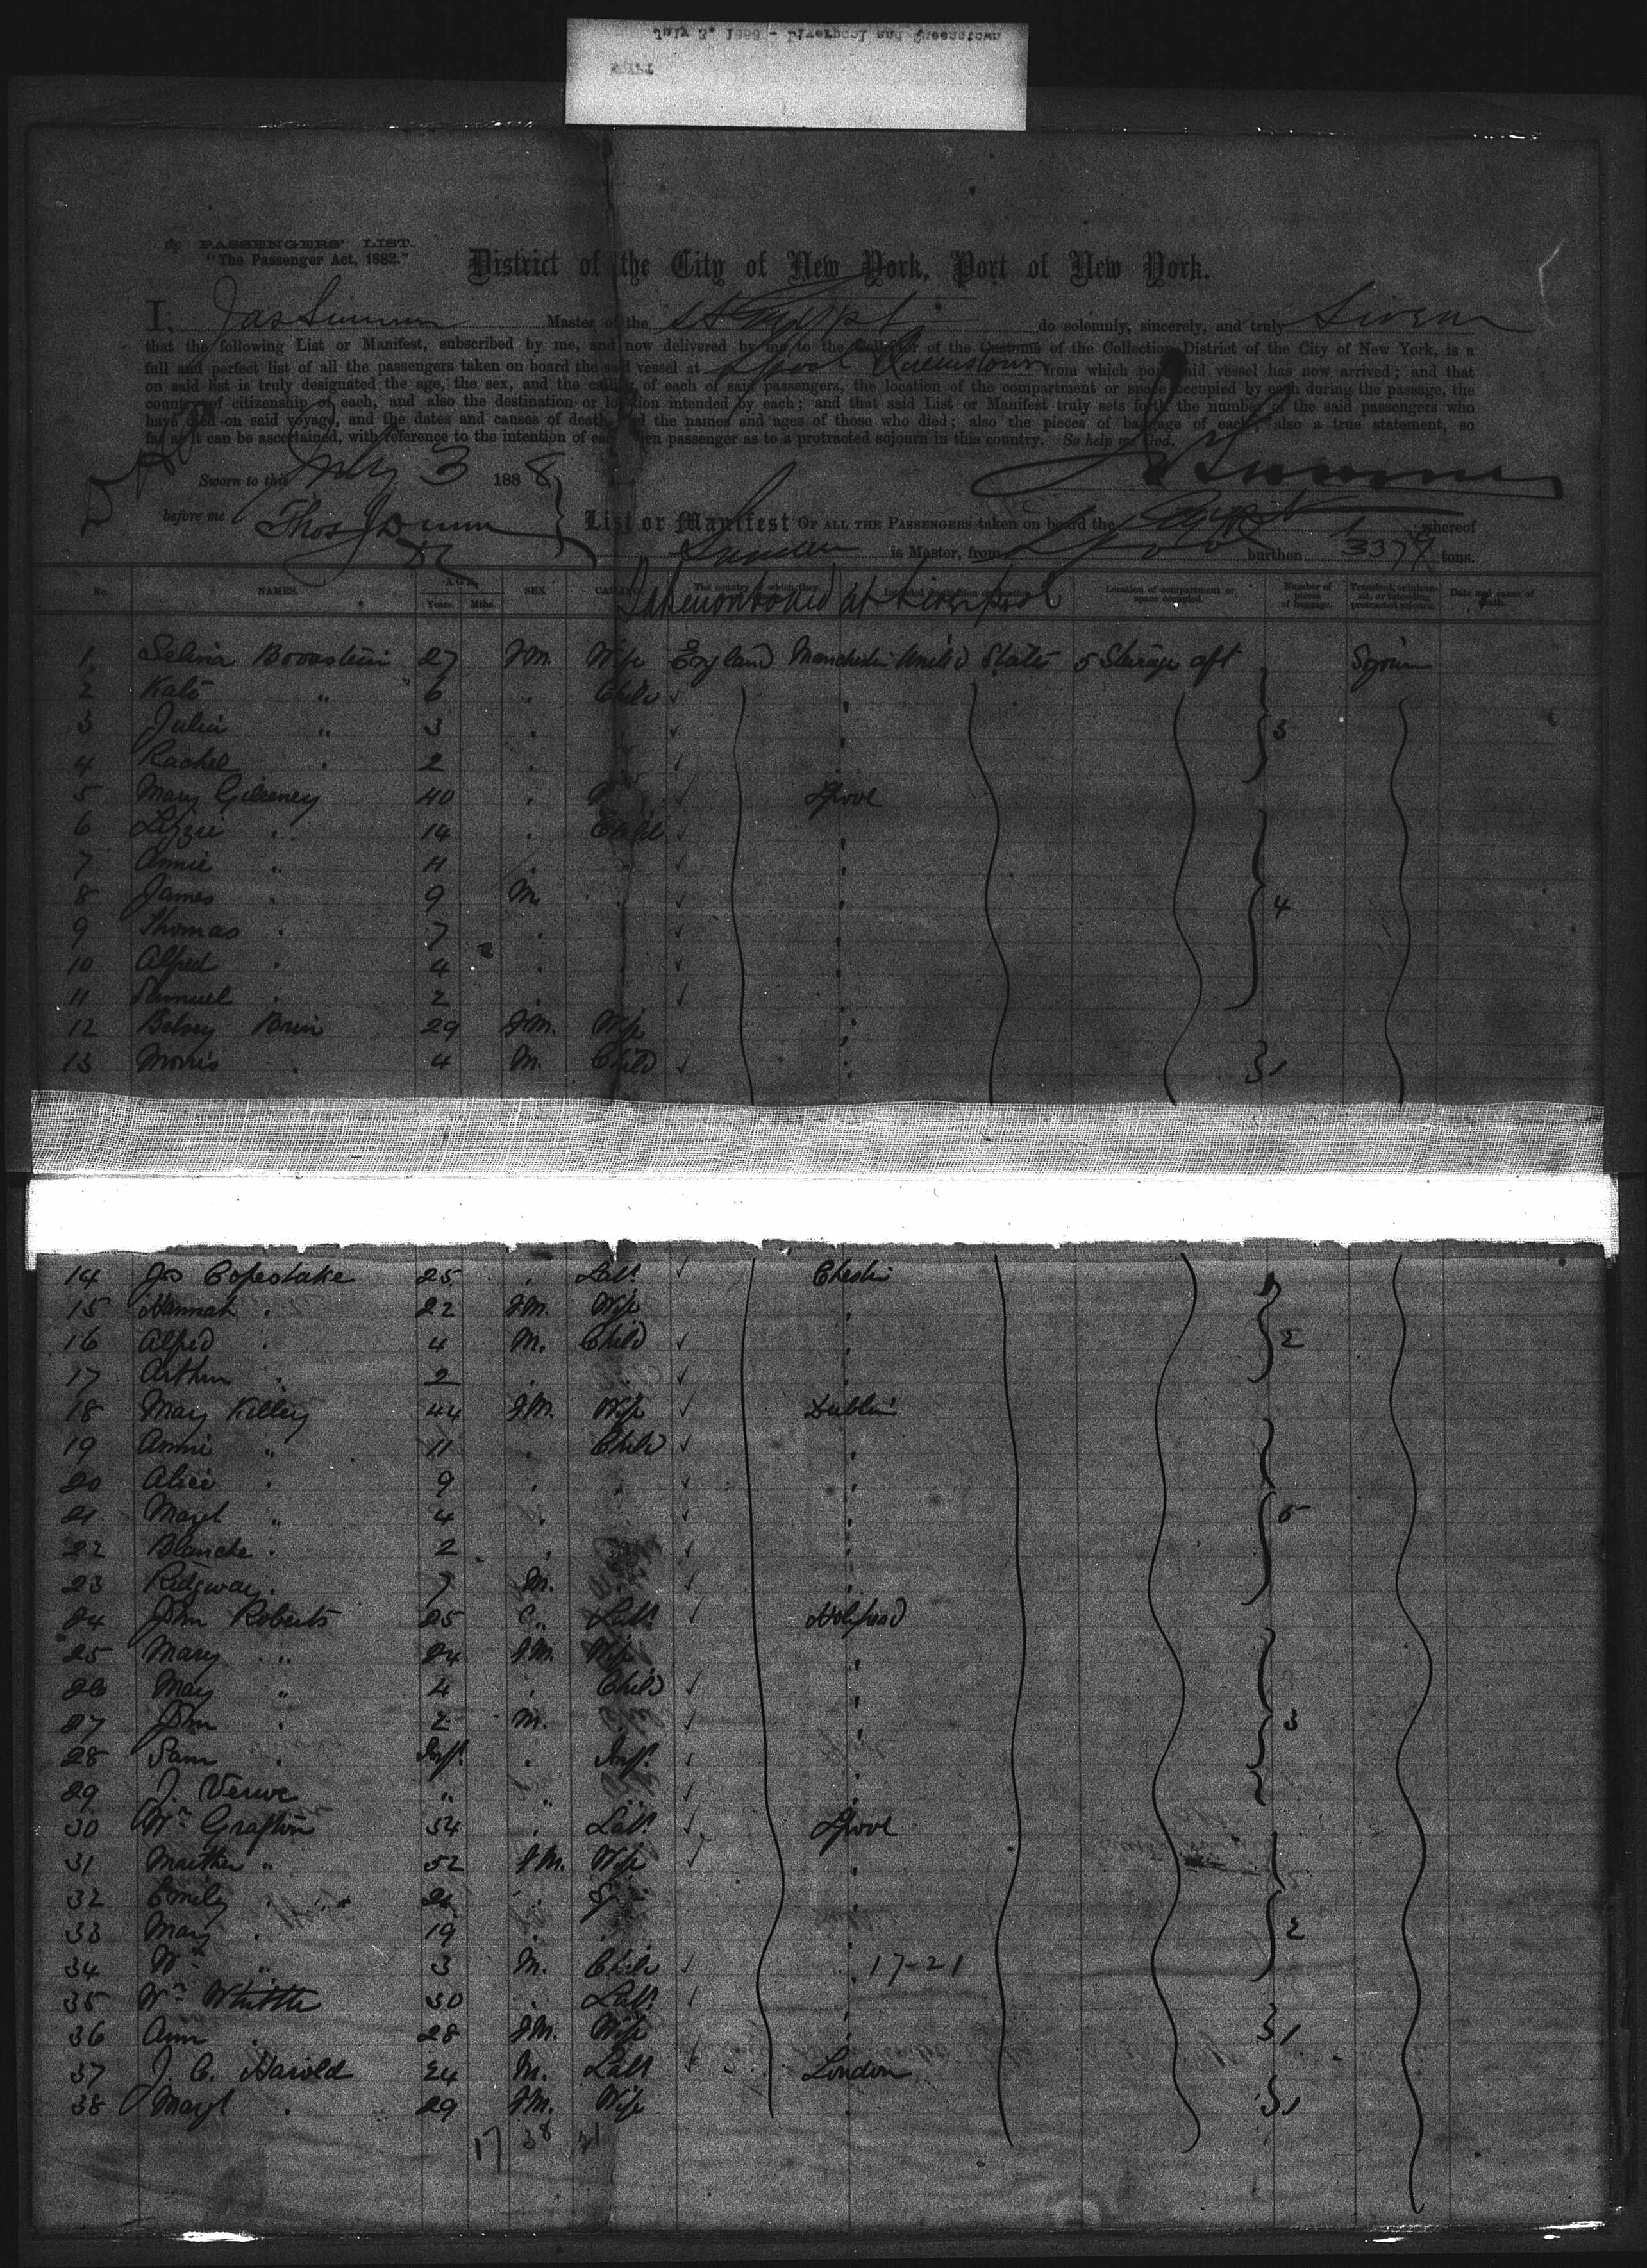 July 3, 1888 - Liverpool and Queenstown
EGYPT
PASSENGERS' LIST.
"The Passenger Act, 1882."
District of the City of New York, Port of New York.
I, Jas Master of the SS Egypt do solemnly, sincerely, and truly Swear
that the following List or Manifest, subscribed by me, and now delivered by me to the Collector of the Customs of the Collection District of the City of New York, is a
full and perfect list of all the passengers taken on board the said vessel at Lpool Queenstown from which port said vessel has now arrived; and that
on said list is truly designated the age, the sex, and the calling of each of said passengers, the location of the compartment or space occupied by each during the passage, the
country of citizenship of each, and also the destination or location intended by each; and that said List or Manifest truly sets forth the number of the said passengers who
have died on said voyage, and the dates and causes of death, and the names and ages of those who died; also the pieces of baggage of each; also a true statement, so
far as it can be ascertained, with reference to the intention of each alien passenger as to a protracted sojourn in this country. So help me God.
Sworn to this July 3 1888
before me Thos J Dunn
List or Manifest OF ALL THE PASSENGERS taken on board the Egypt whereof
is Master, from Lpool burthen 3379 tons.
No. NAMES. AGE. Years. Mths. SEX CALLING Location of compartment or space occupied. Number of pieces of baggage. Date and cause of death.
Taken on board at Liverpool
1 Selina Boorstein 27 Fm. Wife England Manchester United States 5 Sterage aft Sojourn
2 Kate " 6 " Child ✓
3 Julia " 3 " ✓ 3
4 Rachel " 2 " ✓
5 Mary Gilseney 40 " ✓ Lpool
6 Lizzie " 14 " Child ✓
7 Annie " 11 ✓
8 James " 9 M. ✓ 4
9 Thomas " 7 " ✓
10 Alfred " 4 " ✓
11 Samuel " 2 " ✓
12 Betsey Brin 29 Fm. Wife
13 Morris " 4 M. Child ✓ 1
14 Jas Copestake 25 " Labr ✓ Chester
15 Hannah " 22 Fm. Wife
16 Alfred " 4 M. Child ✓ 2
17 Arthur " 2 " ✓
18 Mary Killey 44 Fm. Wife ✓ Dublin
19 Annie " 11 " Child ✓
20 Alice " 9 " ✓
21 Margt " 4 " ✓ 5
22 Blanche " 2 " ✓
23 Ridgway " 7 M. ✓
24 John Roberts 25 " Labr ✓ Holyhead
25 Mary " 24 Fm. Wife
26 May " 4 " Child ✓
27 John " 2 M. ✓ 3
28 Sam " Inft. " Inft. ✓
29 J. Verwe " " ✓
30 Wm Grafton 54 " Labr ✓ Lpool
31 Marther " 52 Fm. Wife ✓
32 Emily " 21 " Sp
33 Mary " 19 " 2
34 Wm " 3 M. Child ✓ 17-21
35 Wm Whittle 30 " Labr ✓
36 Ann " 28 Fm. Wife 1
37 J. C. Harold 24 M. Labr ✓ London
38 Margt " 29 Fm. Wife 1
17 38 21